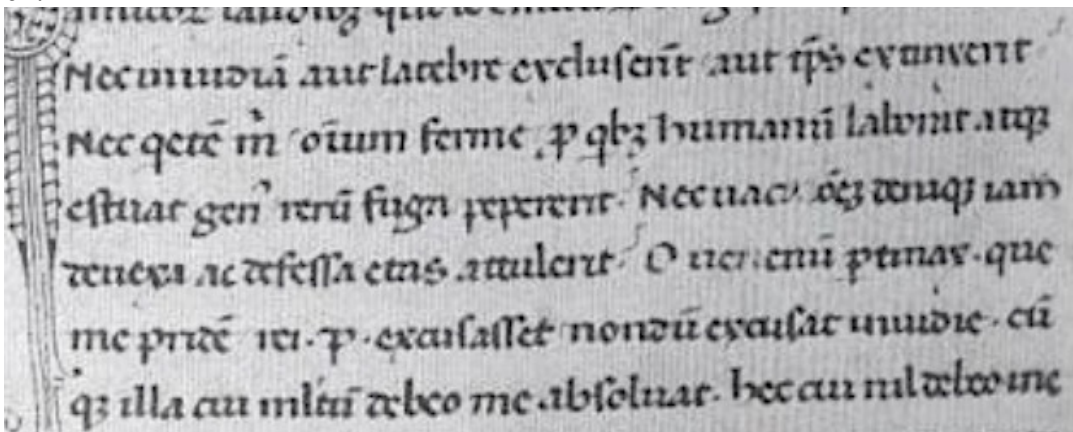 Nec inuidiā aut latebre excluserīt aut tp̄s extinxerit
Nec qetē m̄ oīum ferme p qbꝫ humanū laborat atqꝫ
estuat gen᾽ rerū fuga pepererit. Nec uac᾽ deniqꝫ iam
deuexa ac defessa etas attulerit. O enī ptinax. que
me pridē rei. p. excusasset nondū excusat inuidie. cū
qꝫ illa cui mltū debeo me absoluat. hec cui nil debeo me